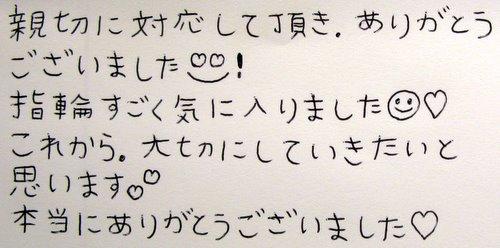 親切に対応して頂き。ありがとう
ございました!
指輪すごく気に入りました☺♡
これから。大切にしていきたいと
思います♡♡
本当にありがとうございました♡